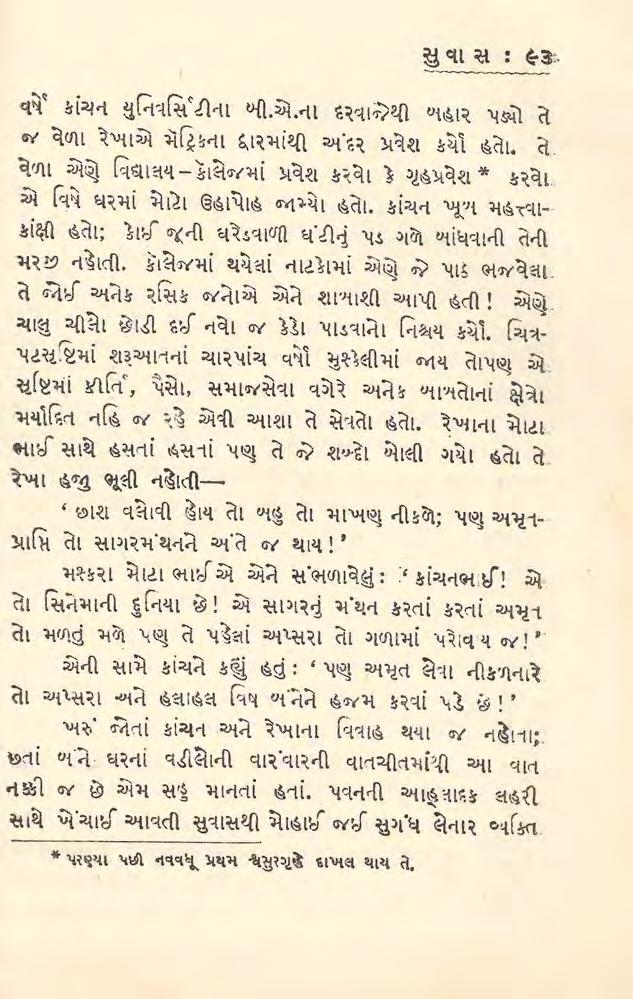 સુવાસ : ૯૩
વર્ષે કાંચન યુનિવર્સિટીના બી.એ.ના દરવાજેથી બહાર પડ્યો તે
જ વેળા રેખાએ મૅટ્રિકના દ્વારમાંથી અંદર પ્રવેશ કર્યો હતો. તે
વેળા એણે વિદ્યાલય–કૉલેજમાં પ્રવેશ કરવો કે ગૃહપ્રવેશ * કરવો
એ વિષે ઘરમાં મોટો ઉહાપોહ જામ્યો હતો. કાંચન ખૂબ મહત્ત્વા-
કાંક્ષી હતો; કોઈ જૂની ઘરેડવાળી ઘંટીનું પડ ગળે બાંધવાની તેની
મરજી નહોતી. કૉલેજમાં થયેલાં નાટકોમાં એણે જે પાઠ ભજવેલા
તે જોઈ અનેક રસિક જનોએ એને શાબાશી આપી હતી! એણે
ચાલુ ચીલો છોડી દઈ નવો જ કેડો પાડવાનો નિશ્ચય કર્યો. ચિત્ર-
પટસૃષ્ટિમાં શરૂઆતનાં ચારપાંચ વર્ષો મુશ્કેલીમાં જાય તોપણ એ
સૃષ્ટિમાં કીર્તિ, પૈસો, સમાજસેવા વગેરે અનેક બાબતોનાં ક્ષેત્રો
મર્યાદિત નહિ જ રહે એવી આશા તે સેવતો હતો. રેખાના મોટા
ભાઈ સાથે હસતાં હસતાં પણ તે જે શબ્દો બોલી ગયો હતો તે
રેખા હજુ ભૂલી નહોતી—
‘ છાશ વલોવી હોય તો બહુ તો માખણ નીકળે; પણ અમૃત-
પ્રાપ્તિ તો સાગરમંથનને અંતે જ થાય!’
મશ્કરા મોટા ભાઈએ એને સંભળાવેલું : ‘ કાંચનભાઈ! એ
તો સિનેમાની દુનિયા છે! એ સાગરનું મંથન કરતાં કરતાં અમૃત
તો મળતું મળે પણ તે પહેલાં અપ્સરા તો ગળામાં પરોવાય જ!’
એની સામે કાંચને કહ્યું હતું : ‘ પણ અમૃત લેવા નીકળનારે
તો અપ્સરા અને હલાહલ વિષ બંનેને હજમ કરવાં પડે છે!’
ખરું જોતાં કાંચન અને રેખાના વિવાહ થયા જ નહોતા;
છતાં બંને ઘરનાં વડીલોની વારંવારની વાતચીતમાંથી આ વાત
નક્કી જ છે એમ સહુ માનતાં હતાં. પવનની આહ્લાદક લહરી
સાથે ખેંચાઈ આવતી સુવાસથી મોહાઈ જઈ સુગંધ લેનાર વ્યક્તિ
* પરણ્યા પછી નવવધૂ પ્રથમ શ્વસુરગૃહે દાખલ થાય તે.